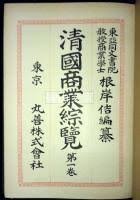 東亞同文書院
教授商業學士 根岸佶編纂
清國商業綜覽 第一卷
東京 丸善株式會社